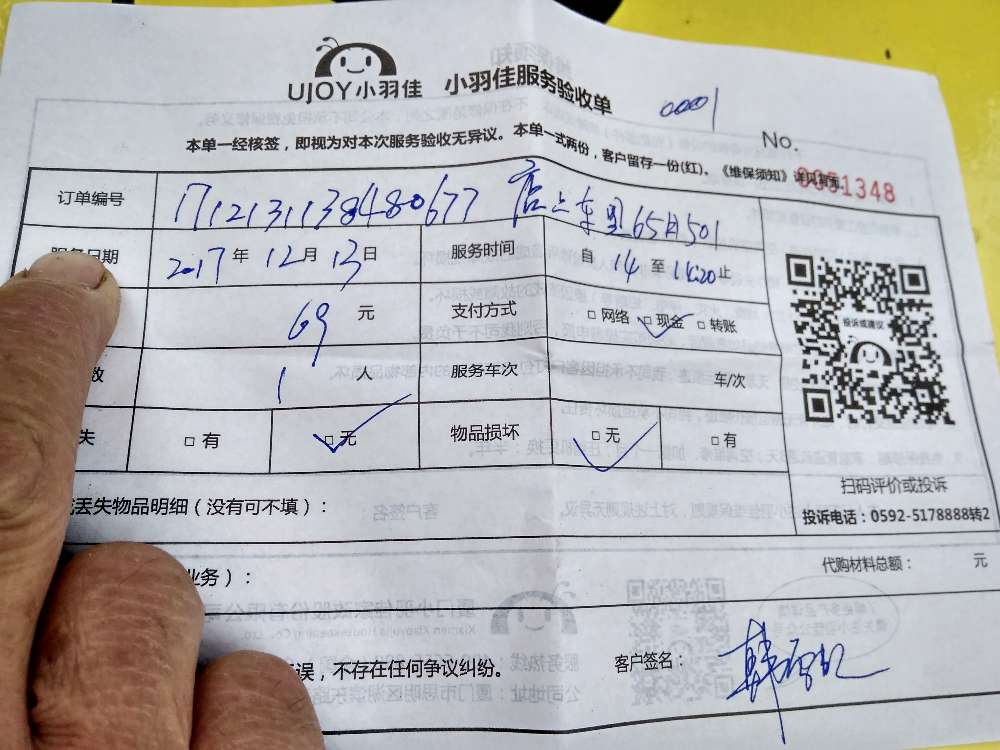 UJOY小羽佳 小羽佳服务验收单 0001
No. 0051348
本单一经核签，即视为对本次服务验收无异议。本单一式两份，客户留存一份(红)。《维保须知》详见背面
订单编号 1712131138480677 店上东里65月501
服务日期 2017 年 12 月 13 日 服务时间 自 14 至 14:20 止
69 元 支付方式 □ 网络 □ 现金 □ 转账
数 1 人 服务车次 车/次
失 □ 有 □ 无 物品损坏 □ 无 □ 有
投诉或建议
扫码评价或投诉
投诉电话：0592-5178888转2
丢失物品明细（没有可不填）：
业务）： 代购材料总额： 元
误，不存在任何争议纠纷。 客户签名：